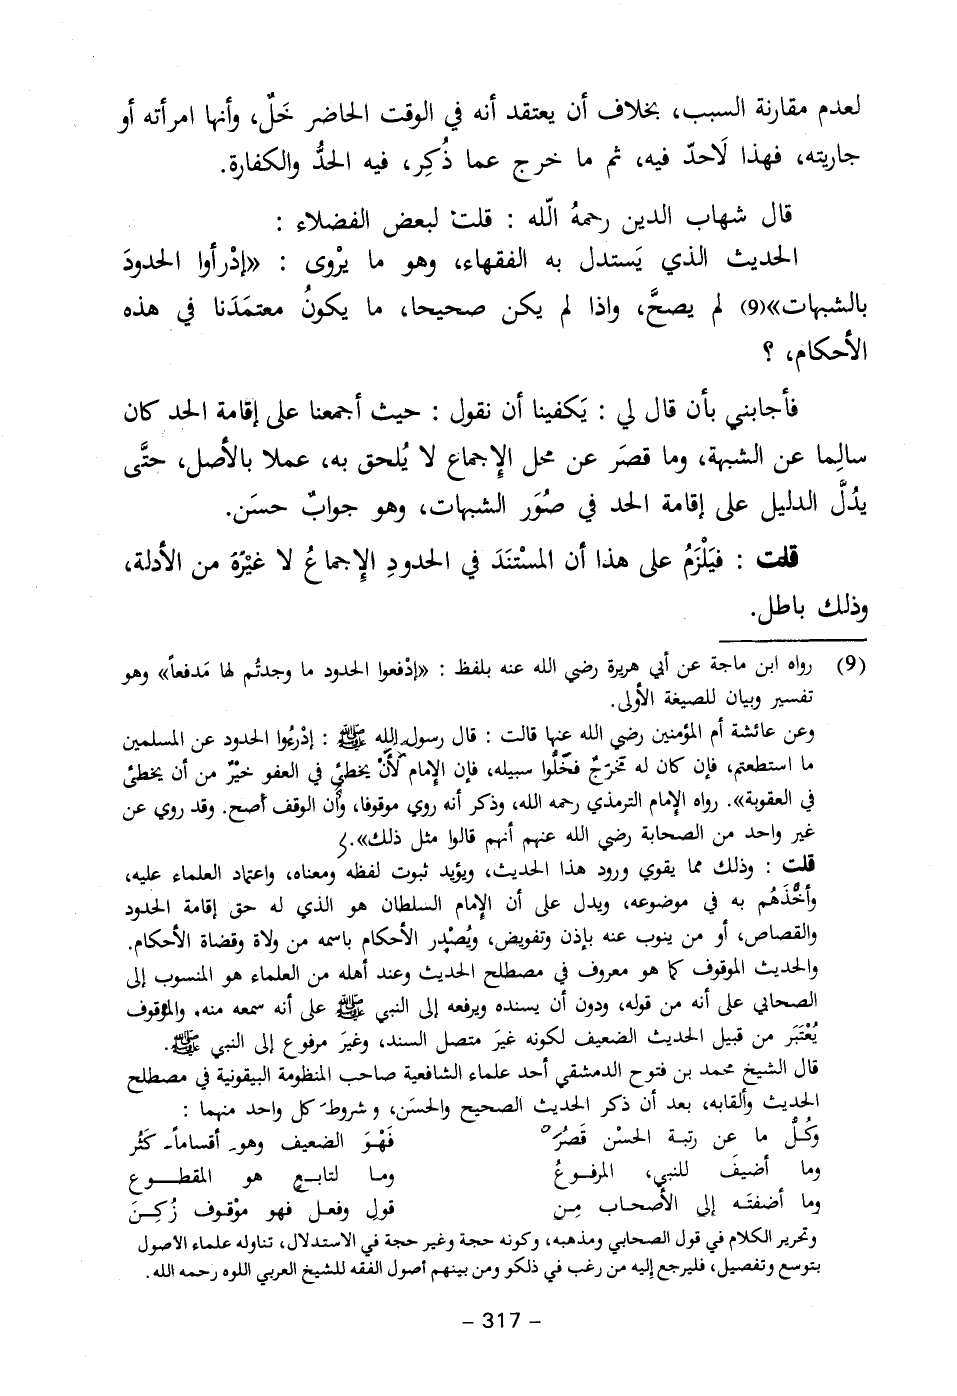 لعدم مقارنة السبب، بخلاف أن يعتقد أنه في الوقت الحاضر خَلٌ، وأنها امرأته أو
جاريته، فهذا لَاحدّ فيه، ثم ما خرج عما ذُكِر، فيه الحدُّ والكفارة.
قال شهاب الدين رحمهُ الله : قلت لبعض الفضلاء :
الحديث الذي يَستدل به الفقهاء، وهو ما يرْوى : «إدْرأوا الحدودَ
بالشبهات»(9) لم يصحَّ، واذا لم يكن صحيحا، ما يكونُ معتمَدَنا في هذه
الأحكام، ؟
فأجابني بأن قال لي : يَكفينا أن نقول : حيث أجمعنا على إقامة الحد كان
سالِما عن الشبهة، وما قصَر عن محل الإجماع لا يُلحق به، عملا بالأصل، حتَّى
يدُلَّ الدليل على إقامة الحد في صُوَر الشبهات، وهو جوابٌ حسَن.
قلت : فيَلْزَمُ على هذا أن المسْتنَدَ في الحدودِ الإجماعُ لا غيْرَهُ من الأدلة،
وذلك باطل.
(9) رواه ابن ماجة عن أبي هريرة رضي الله عنه بلفظ : «إدْفعوا الحدود ما وجدتُم لها مَدفعاً» وهو
تفسير وبيان للصيغة الأولى.
وعن عائشة أم المؤمنين رضي الله عنها قالت : قال رسول الله ﷺ : إدْرءُوا الحدود عن المسلمين
ما استطعتم، فإن كان له مَخرَجٌ فخَلُّوا سبيله، فإن الإمام لَأَنْ يخطئ في العفو خيْرٌ من أن يخطئ
في العقوبة». رواه الإمام الترمذي رحمه الله، وذكر أنه روي موقوفا، وأن الوقف أصح. وقد روي عن
غير واحد من الصحابة رضي الله عنهم أنهم قالوا مثل ذلك».
قلت : وذلك مما يقوي ورود هذا الحديث، ويؤيد ثبوت لفظه ومعناه، واعتماد العلماء عليه،
وأخْذَهُم به في موضوعه، ويدل على أن الإمام السلطان هو الذي له حق إقامة الحدود
والقصاص، أو من ينوب عنه بإذن وتفويض، ويُصْدِر الأحكام باسمه من ولاة وقضاة الأحكام.
والحديث الموقوف كما هو معروف في مصطلح الحديث وعند أهله من العلماء هو المنسوب إلى
الصحابي على أنه من قوله، ودون أن يسنده ويرفعه إلى النبي ﷺ على أنه سمعه منه. والموقوف
يُعْتَبَر من قبيل الحديث الضعيف لكونه غيرَ متصل السند، وغيرَ مرفوع إلى النبي ﷺ.
قال الشيخ محمد بن فتوح الدمشقي أحد علماء الشافعية صاحب المنظومة البيقونية في مصطلح
الحديث وألقابه، بعد أن ذكر الحديث الصحيح والحسَن، وشروط كل واحد منهما :
وكُلُّ ما عن رتبة الحسْن قَصُرَ فَهْوَ الضعيف وهو أقساماً كَثُر
وما أضيفَ للنبي، المرفوعُ وما لتابعٍ هو المقطوع
وما أضفتَه إلى الأصحاب مِن قولٍ وفعل فهو موْقوف زُكِنَ
وتحرير الكلام في قول الصحابي ومذهبه، وكونه حجة وغير حجة في الاستدلال، تناوله علماء الاصول
بتوسع وتفصيل، فليرجع إليه من رغب في ذلكو ومن بينهم أصول الفقه للشيخ العربي اللوه رحمه الله.
– 317 –